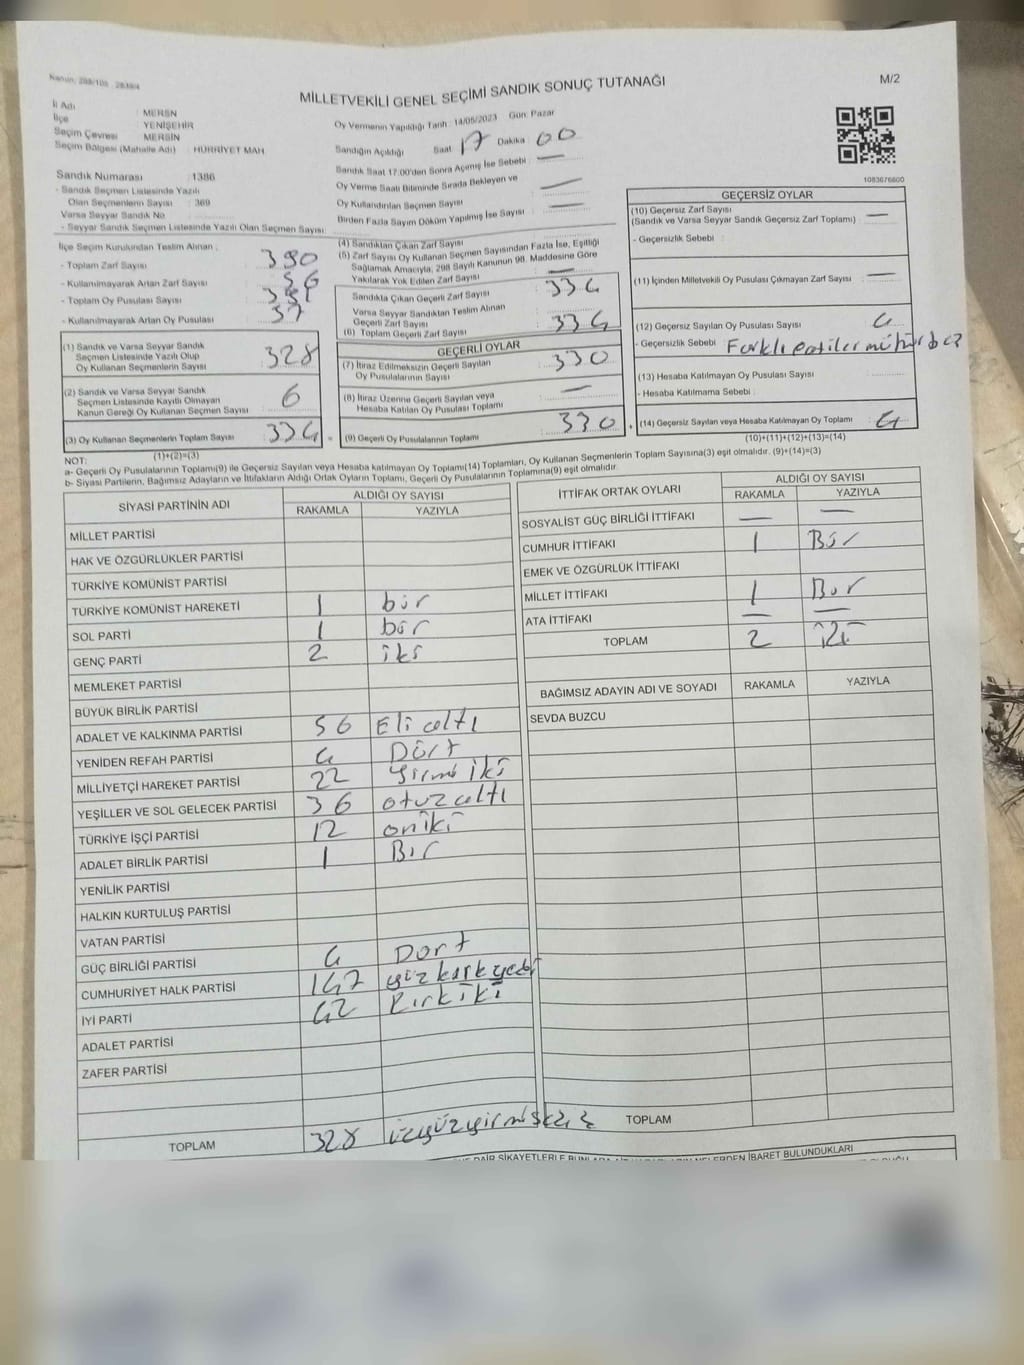 Kanun: 298/105 2839/4
MİLLETVEKİLİ GENEL SEÇİMİ SANDIK SONUÇ TUTANAĞI
M/2
İl Adı : MERSİN
İlçe : YENİŞEHİR
Seçim Çevresi : MERSİN
Seçim Bölgesi (Mahalle Adı) : HÜRRİYET MAH
Sandık Numarası : 1386
- Sandık Seçmen Listesinde Yazılı
Olan Seçmenlerin Sayısı : 369
Varsa Seyyar Sandık No
- Seyyar Sandık Seçmen Listesinde Yazılı Olan Seçmen Sayısı:
Oy Vermenin Yapıldığı Tarih : 14/05/2023 Gün: Pazar
Sandığın Açıldığı Saat 17 Dakika 00
Sandık Saat 17.00'den Sonra Açılmış İse Sebebi : —
Oy Verme Saati Bitiminde Sırada Bekleyen ve
Oy Kullandırılan Seçmen Sayısı —
Birden Fazla Sayım Döküm Yapılmış İse Sayısı —
1083076600
İlçe Seçim Kurulundan Teslim Alınan :
- Toplam Zarf Sayısı : 390
- Kullanılmayarak Artan Zarf Sayısı : 56
- Toplam Oy Pusulası Sayısı
- Kullanılmayarak Artan Oy Pusulası : 37
(1) Sandık ve Varsa Seyyar Sandık
Seçmen Listesinde Yazılı Olup
Oy Kullanan Seçmenlerin Sayısı : 328
(2) Sandık ve Varsa Seyyar Sandık
Seçmen Listesinde Kayıtlı Olmayan
Kanun Gereği Oy Kullanan Seçmen Sayısı 6
(3) Oy Kullanan Seçmenlerin Toplam Sayısı 334
(1)+(2)=(3)
(4) Sandıktan Çıkan Zarf Sayısı
(5) Zarf Sayısı Oy Kullanan Seçmen Sayısından Fazla İse, Eşitliği
Sağlamak Amacıyla, 298 Sayılı Kanunun 98. Maddesine Göre
Yakılarak Yok Edilen Zarf Sayısı —
Sandıkta Çıkan Geçerli Zarf Sayısı : 334
Varsa Seyyar Sandıktan Teslim Alınan
Geçerli Zarf Sayısı
(6) Toplam Geçerli Zarf Sayısı : 334
GEÇERLİ OYLAR
(7) İtiraz Edilmeksizin Geçerli Sayılan
Oy Pusulalarının Sayısı : 330
(8) İtiraz Üzerine Geçerli Sayılan veya
Hesaba Katılan Oy Pusulası Toplamı —
= (9) Geçerli Oy Pusulalarının Toplamı : 330
GEÇERSİZ OYLAR
(10) Geçersiz Zarf Sayısı
(Sandık ve Varsa Seyyar Sandık Geçersiz Zarf Toplamı) : —
- Geçersizlik Sebebi :
(11) İçinden Milletvekili Oy Pusulası Çıkmayan Zarf Sayısı : —
(12) Geçersiz Sayılan Oy Pusulası Sayısı : 4
- Geçersizlik Sebebi : Farklı
(13) Hesaba Katılmayan Oy Pusulası Sayısı
- Hesaba Katılmama Sebebi :
+ (14) Geçersiz Sayılan veya Hesaba Katılmayan Oy Toplamı : 4
(10)+(11)+(12)+(13)=(14)
NOT:
a- Geçerli Oy Pusulalarının Toplamı(9) ile Geçersiz Sayılan veya Hesaba katılmayan Oy Toplamı(14) Toplamları, Oy Kullanan Seçmenlerin Toplam Sayısına(3) eşit olmalıdır. (9)+(14)=(3)
b- Siyasi Partilerin, Bağımsız Adayların ve İttifakların Aldığı Ortak Oyların Toplamı, Geçerli Oy Pusulalarının Toplamına(9) eşit olmalıdır.
SİYASİ PARTİNİN ADI ALDIĞI OY SAYISI
RAKAMLA YAZIYLA
MİLLET PARTİSİ
HAK VE ÖZGÜRLÜKLER PARTİSİ
TÜRKİYE KOMÜNİST PARTİSİ
TÜRKİYE KOMÜNİST HAREKETİ 1 bir
SOL PARTİ 1 bir
GENÇ PARTİ 2 iki
MEMLEKET PARTİSİ
BÜYÜK BİRLİK PARTİSİ
ADALET VE KALKINMA PARTİSİ 56 Eli altı
YENİDEN REFAH PARTİSİ 4 Dört
MİLLİYETÇİ HAREKET PARTİSİ 22 Yirmi iki
YEŞİLLER VE SOL GELECEK PARTİSİ 36 otuz altı
TÜRKİYE İŞÇİ PARTİSİ 12 oniki
ADALET BİRLİK PARTİSİ 1 Bir
YENİLİK PARTİSİ
HALKIN KURTULUŞ PARTİSİ
VATAN PARTİSİ
GÜÇ BİRLİĞİ PARTİSİ 4 Dort
CUMHURİYET HALK PARTİSİ 147 yüz kırk yedi
İYİ PARTİ 42 Kırk iki
ADALET PARTİSİ
ZAFER PARTİSİ
TOPLAM 328 üçyüzyirmisekiz
İTTİFAK ORTAK OYLARI ALDIĞI OY SAYISI
RAKAMLA YAZIYLA
SOSYALİST GÜÇ BİRLİĞİ İTTİFAKI — —
CUMHUR İTTİFAKI 1 Bir
EMEK VE ÖZGÜRLÜK İTTİFAKI
MİLLET İTTİFAKI 1 Bir
ATA İTTİFAKI — —
TOPLAM 2 iki
BAĞIMSIZ ADAYIN ADI VE SOYADI RAKAMLA YAZIYLA
SEVDA BUZCU
TOPLAM